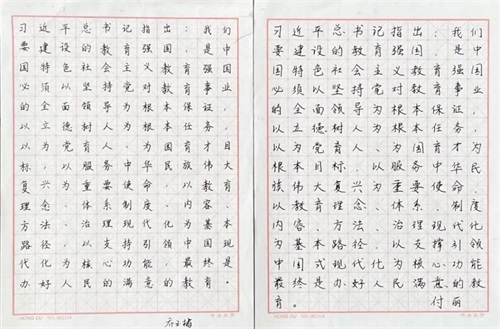 习近平总书记指出：我们
要建设的教育强国，是中
国特色社会主义教育强国，
必须以坚持党对教育事业
的全面领导为根本保证，
以立德树人为根本任务，
以为党育人，为国育才目
标，以服务中华民族伟大
复兴为重要使命，以教育
理念、体系、制度、内容、
方法、治理现代化为基本
路径，以支持引领中国现
代化为核心功能，最终是
办好人民的满意的教育。
习近平总书记指出：我们
要建设的教育强国，是中
国特色社会主义教育强国，
必须以坚持党对教育事业
的全面领导为根本保证，
以立德树人为根本任务，
以为党育人、为国育才为
根本目标，以服务中华民
族伟大复兴为重要使命，
以教育理念、体系、制度、
内容、方法、治理现代化
为基本路径，以支撑引领
中国式现代化为核心功能，
最终是办好人民满意的教
育。 付丽